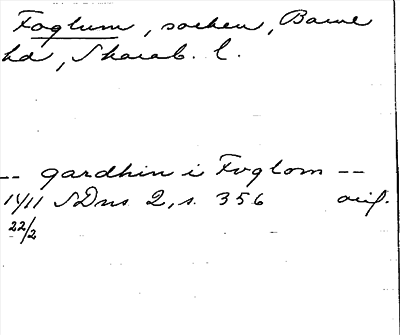 Foglum, socken, Barne
hd, Skarab. l.
-- gardhin i Foglom --
1411 SDns 2, s. 356 orig.
22/2